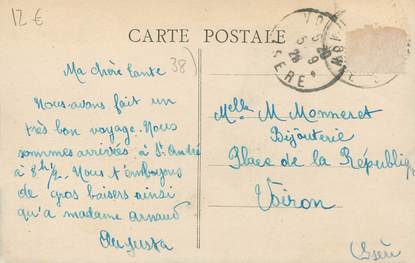 12 €
CARTE POSTALE
38)
ISERE
Ma chère tante
Nous avons fait un
très bon voyage. Nous
sommes arrivées à St André
à 8h ½. Nous t'envoyons
de gros baisers ainsi
qu'a madame Arnaud
Augusta
Melle M Monneret
Bijouterie
Place de la République
Voiron
Isère